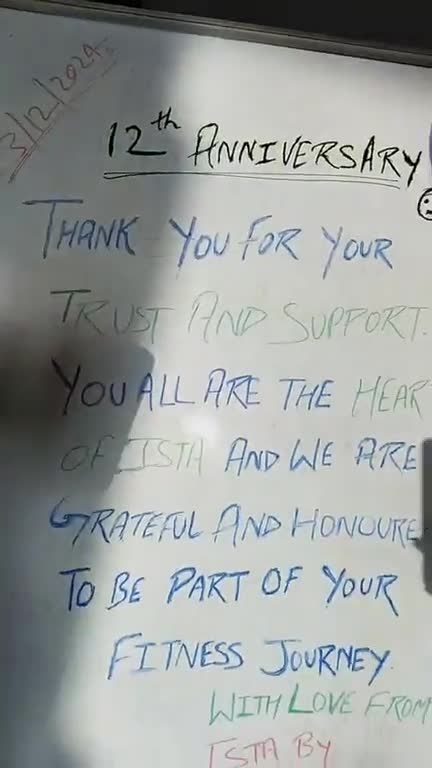 3/12/2024
12th ANNIVERSARY
THANK YOU FOR YOUR
TRUST AND SUPPORT.
YOU ALL ARE THE HEAR
OF ISTA AND WE ARE
GRATEFUL AND HONOURE
TO BE PART OF YOUR
FITNESS JOURNEY.
WITH LOVE FROM
ISTA BY